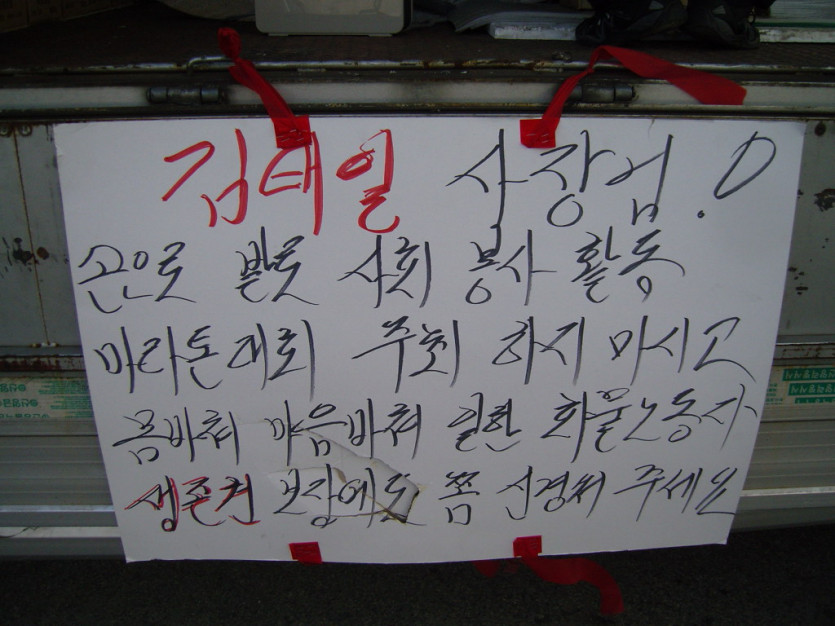 김태일 사장님.
손으로 발로 사회 봉사 활동
마라톤대회 주최 하지 마시고
몸바쳐 마음바쳐 일한 화물노동자
생존권 보장에도 쫌 신경써 주세요